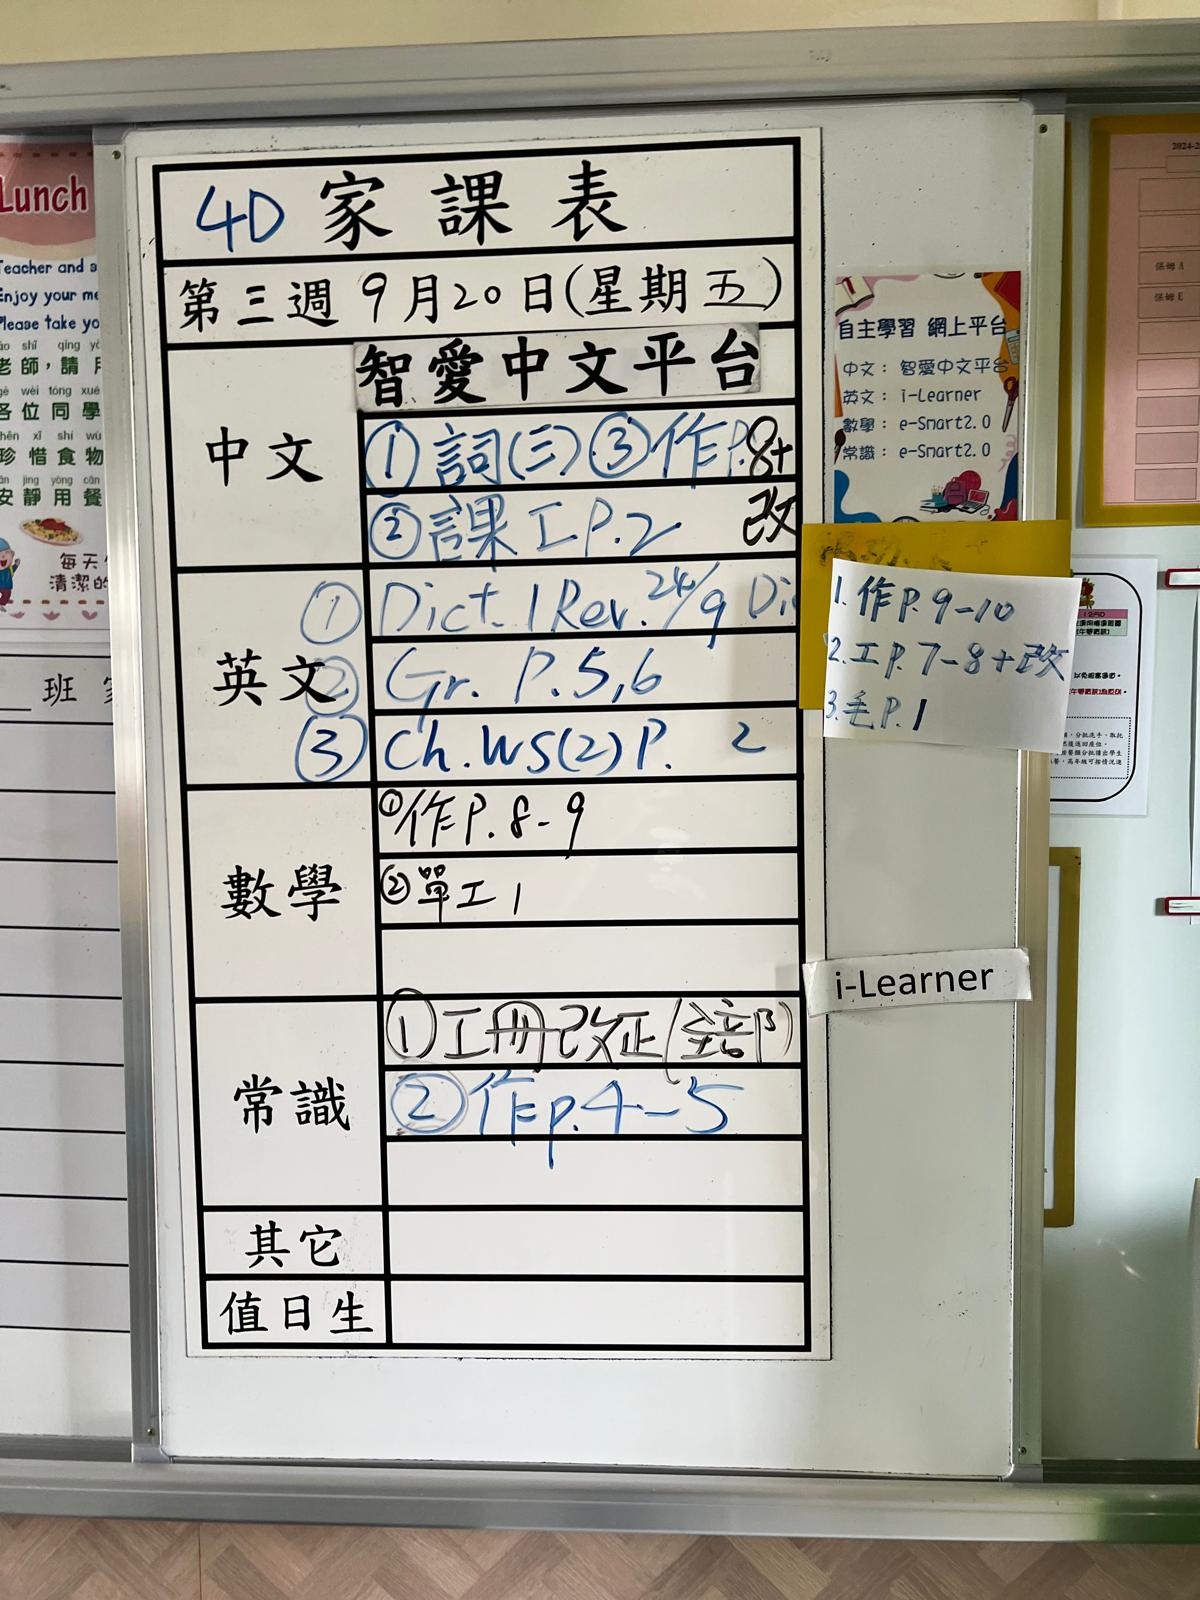 4D 家課表
第三週 9月20日(星期五)
中文
智愛中文平台
① 詞(三) ③ 作P.8+
改
② 課工P.2
英文
① Dict. 1 Rev. 24/9 Di
② Gr. P.5,6
③ Ch. WS(2) P. 2
數學
① 作P.8-9
② 單工1
常識
① 工冊改正(全部)
② 作p.4-5
其它
值日生
自主學習 網上平台
中文： 智愛中文平台
英文： i-Learner
數學： e-Smart2.0
常識： e-Smart2.0
1. 作P.9-10
2. 工P.7-8+改
3. 毛P.1
i-Learner
Lunch
Teacher and s
Enjoy your me
Please take yo
ǎo shī qǐng yò
老師，請用
gè wèi tóng xué
各位同學
zhēn xī shí wù
珍惜食物
ān jìng yòng cān
安靜用餐
每天
清潔的
班
2024-2
保姆 A
保姆 E
12:50